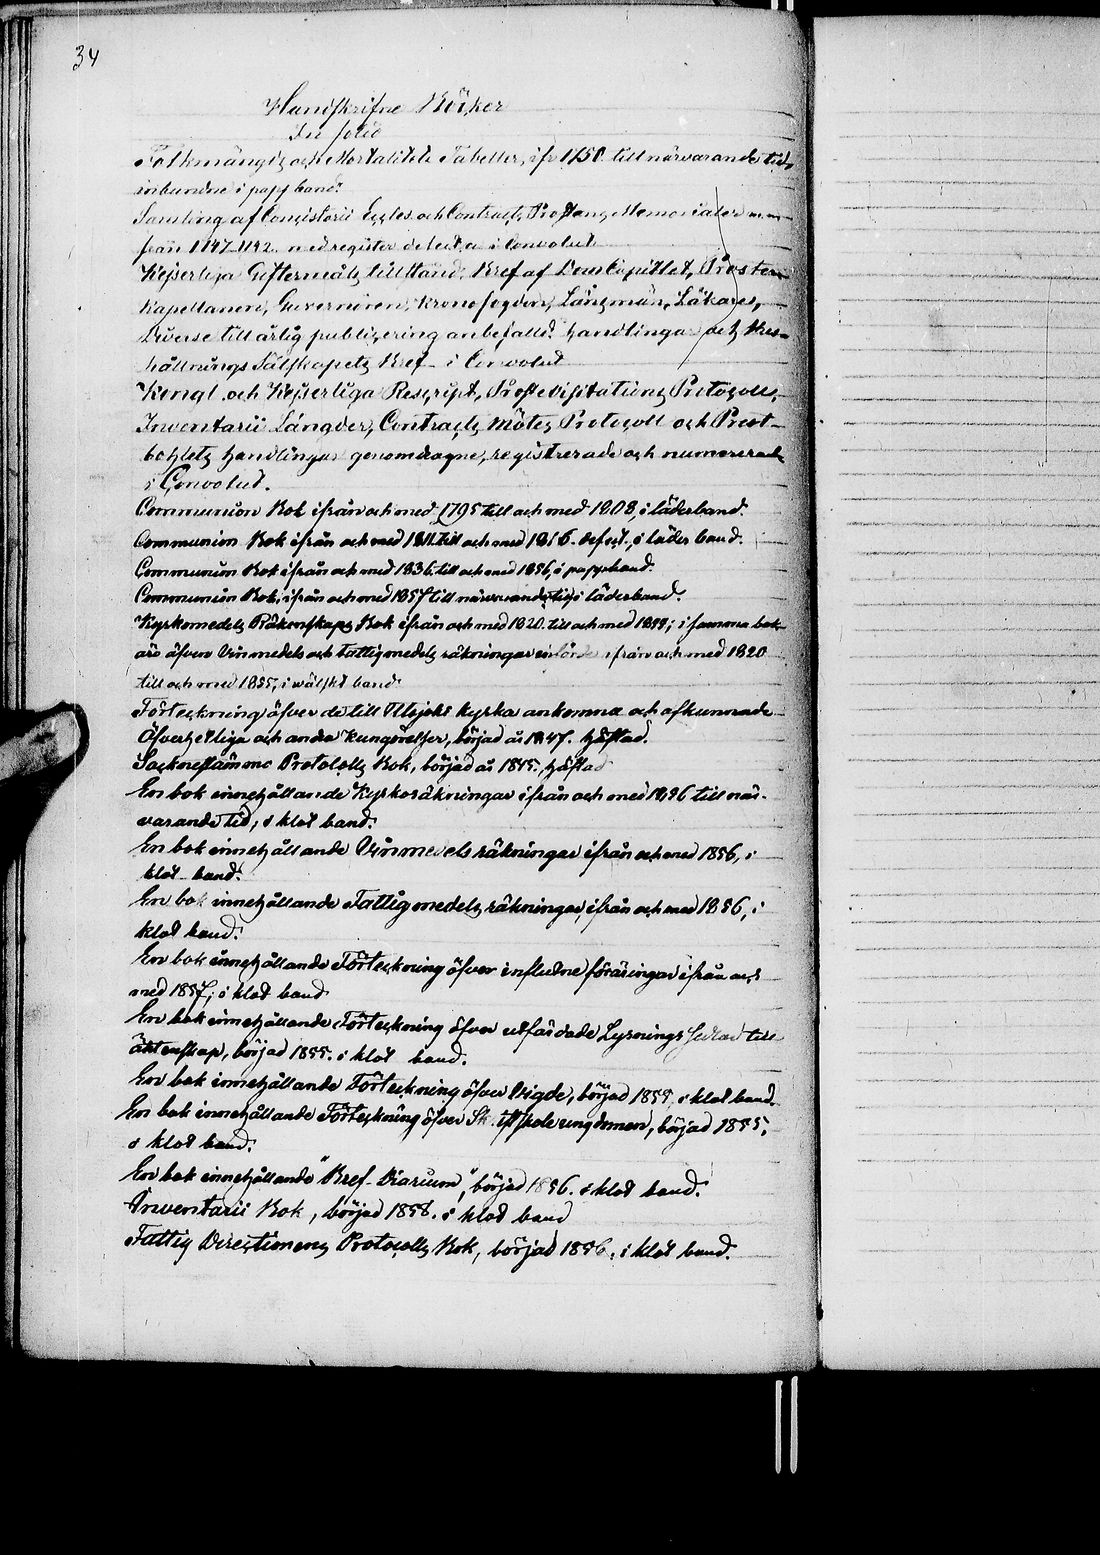 34
Handskrifne Böcker
In folio
Folkmängds och Mortalitets Tabeller, ifr 1750 till närvarande tid,
inbundne i papp band.
Samling af Consistorii Eccles. och Contracts Prostens Memorialer m.m.
från 1747-1792 med register defecta i Convolut
Kejserliga Giftermåls tillstånd, Bref af DomCapitlet, Prosten
Kapellanen, Guvernören, Kronofogden, Länsmän, Läkares,
Diverse till årlig publicering anbefalld. handlingar och Hus-
hållnings Sälskapets Bref - i Convolut
Kongl. och Kejserliga Rescript, Proste Visitations Protocoll,
Inventarii Längder, Contracts Mötes Protocoll och Prest-
bohlets handlingar genomdragne, registrerade och numererade
i Convolut.
Communion Bok ifrån och med 1795 till och med 1808, i läderband.
Communion Bok ifrån och med 1811 till och med 1816. defect, i läder band.
Communion Bok ifrån och med 1836 till och med 1856, i pappband.
Communion Bok ifrån och med 1857 till närvarande tid i läderband.
Kyrkomedels Räkenskaps Bok ifrån och med 1820 till och med 1855; i samma bok
äro äfven Vinmedels och Fattigmedels räkningar införde ifrån och med 1820
till och med 1855, i wälskt band.
Förteckning öfver de till Ulsjoki Kyrka ankomna och afkunnade
Öfverhetliga och andra Kungörelser, börjad år 1847. häftad.
Sockenstämmo Protocolls Bok, börjad år 1845, häftad
En bok innehållande Kyrkoräkningar ifrån och med 1856 till när-
varande tid, i klot band.
En bok innehållande Vinmedels räkningar ifrån och med 1856, i
klot band.
En bok innehållande Fattigmedels räkningar, ifrån och med 1856, i
klot band.
En bok innehållande Förteckning öfver influtne föräringar ifrån och
med 1857, i klot band
En bok innehållande Förteckning öfver utfärdade Lysnings Sedlar till
äktenskap, börjad 1855. i klot band.
En bok innehållande Förteckning öfver Vigde, börjad 1855 i klot band.
En bok innehållande Förteckning öfver skole ungdomen, börjad 1855,
i klot band.
En bok innehållande "Bref-Diarium," börjad 1856. i klot band.
Inventarii Bok, börjad 1858. i klot band
Fattig Directionens Protocolls Bok, börjad 1856, i klot band.